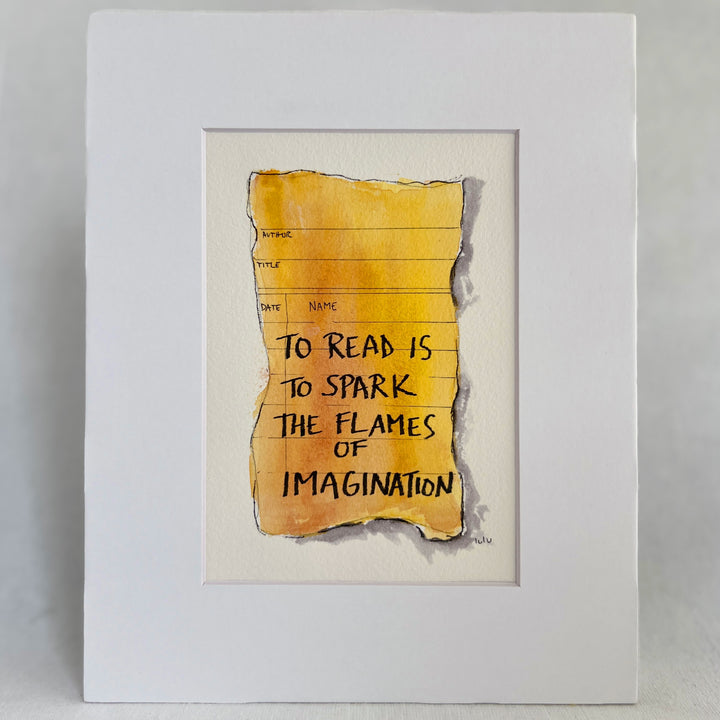 AUTHOR
TITLE
DATE NAME
TO READ IS
TO SPARK
THE FLAMES
OF
IMAGINATION
lulu